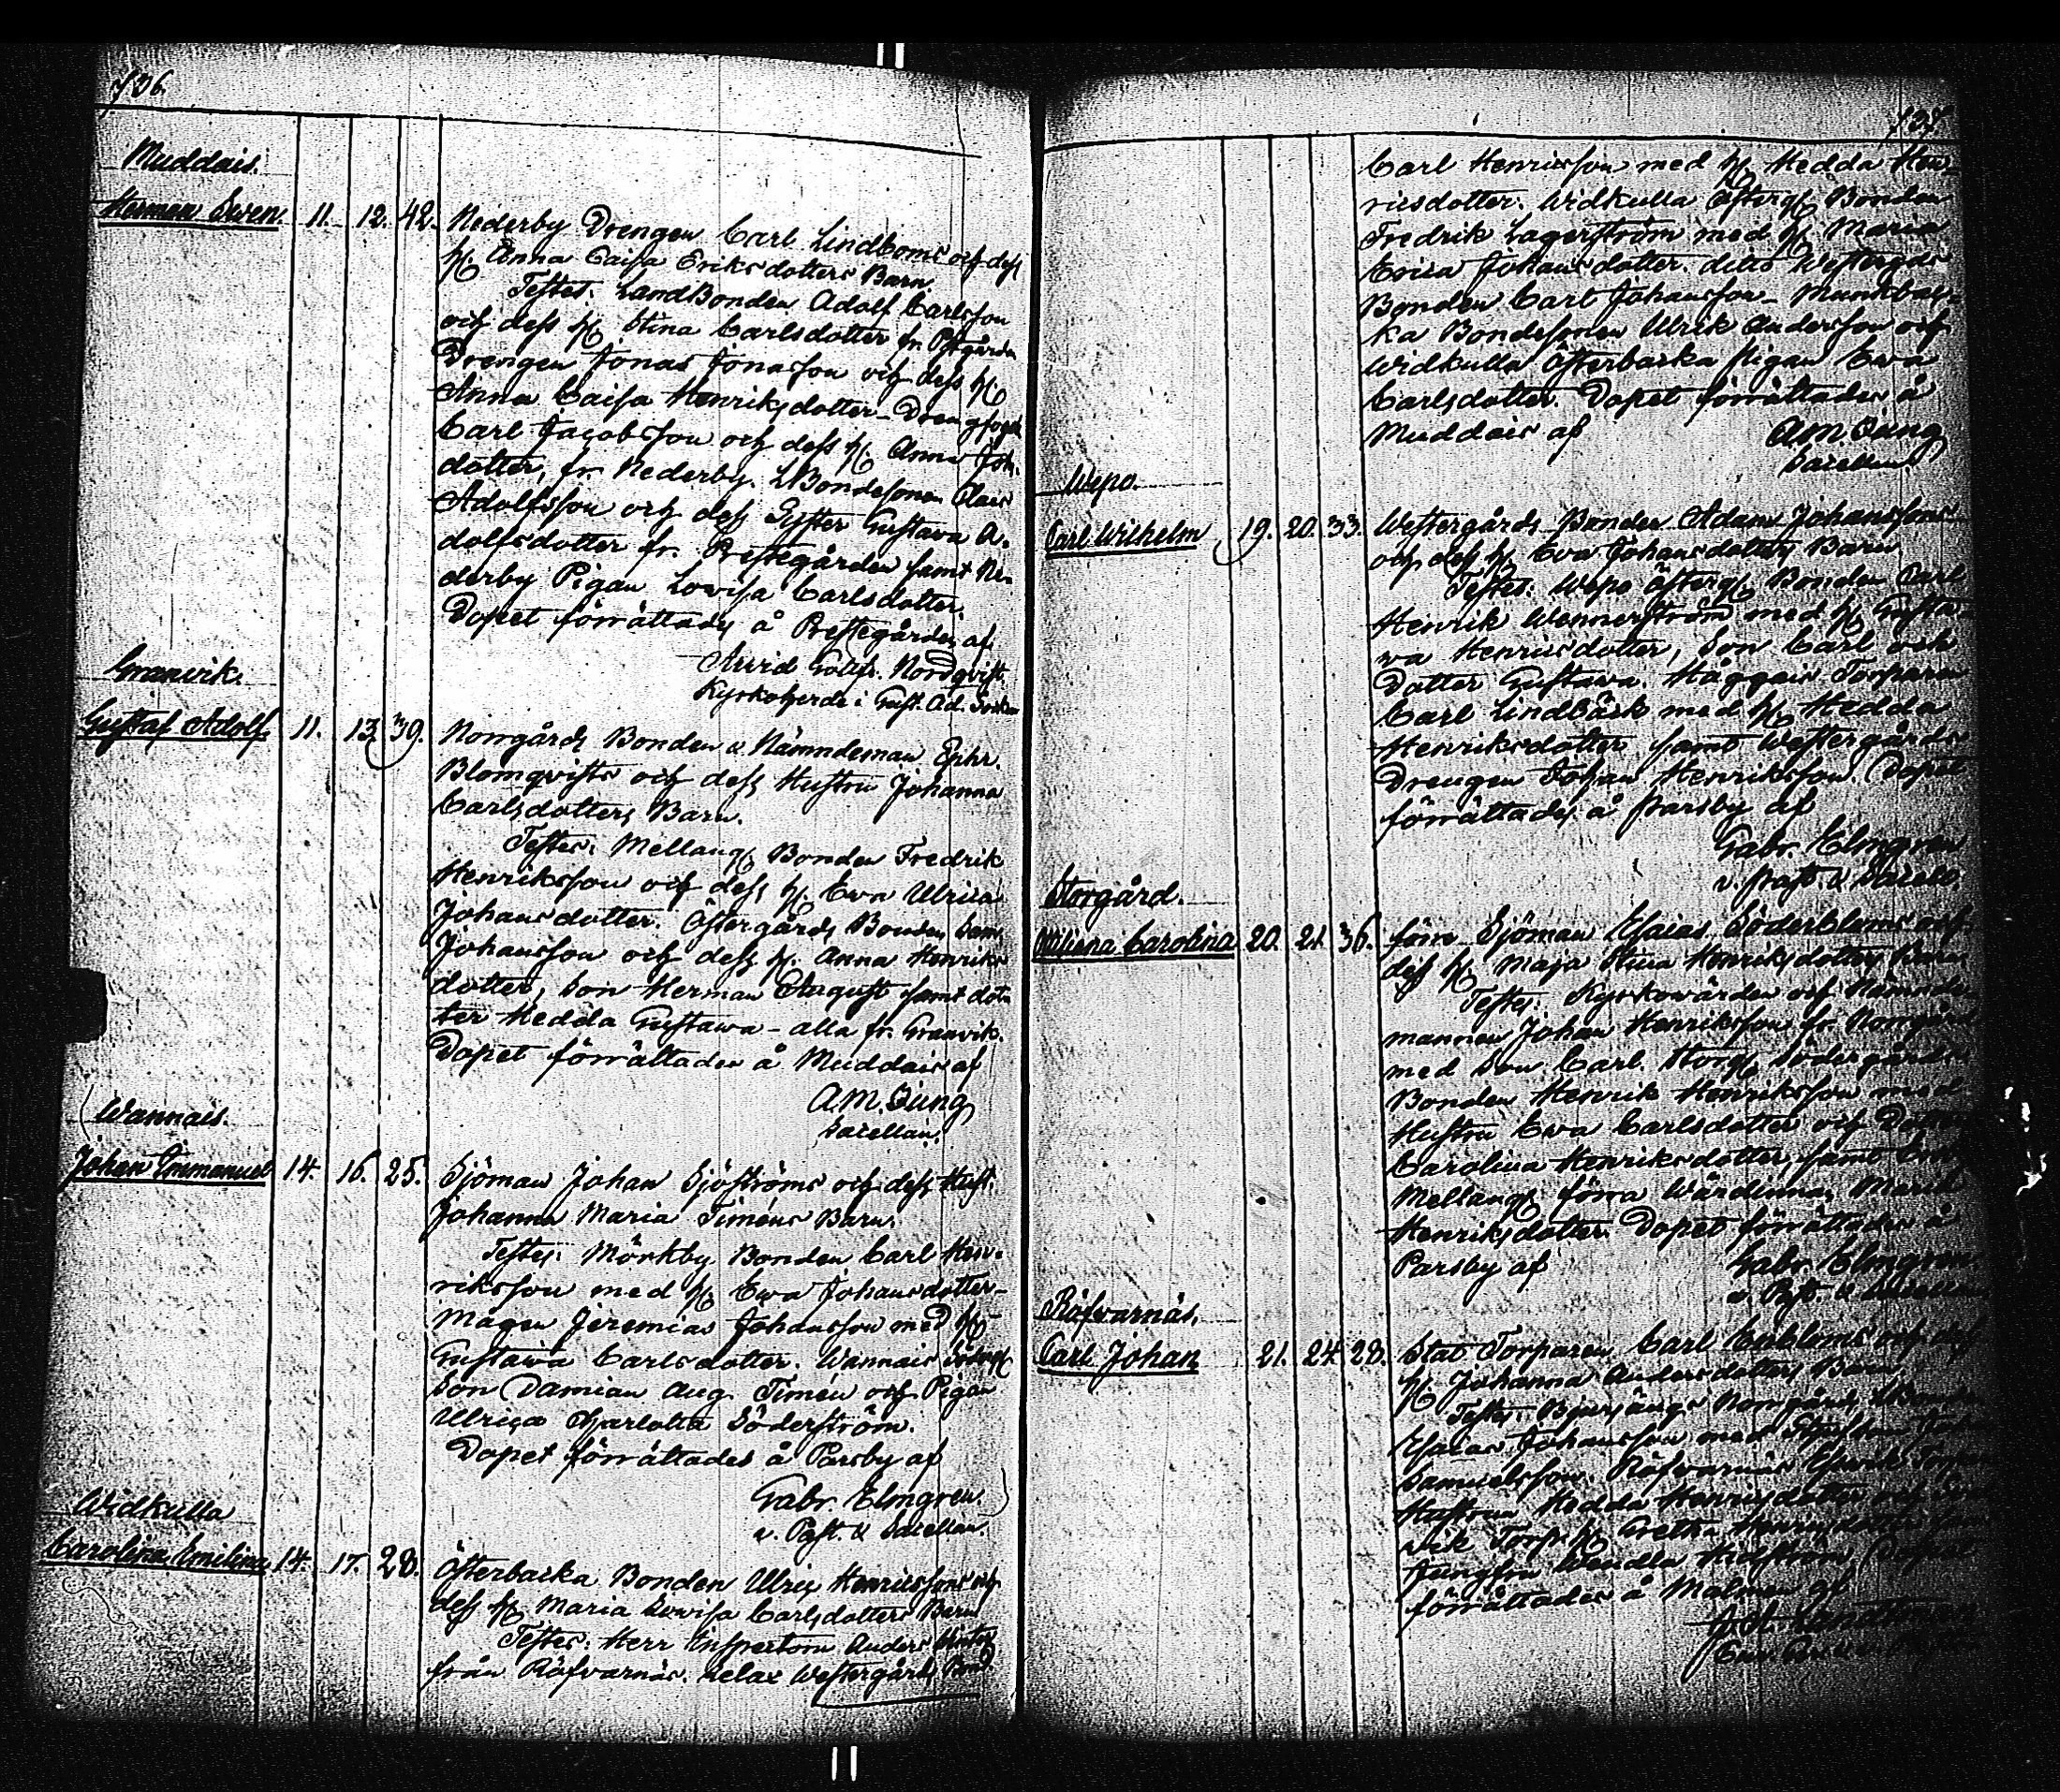 136.
Muddais.
Herman Swen. 11. 12. 42. Nederby Drengen Carl Lindboms och dess
H. Anna Caisa Eriksdotters Barn.
Testes: LandBonden Adolf Carlsson
och dess H. Stina Carlsdotter fr.
Drengen Jonas Jonasson och dess H.
Anna Caisa Henriksdotter - Drengfogd
Carl Jacobsson och dess H. Anna Joh.
dotter, fr. Nederby. LBondesonen Claes
Adolfsson och dess Syster Gustava A-
dolfsdotter fr. Prestegården samt Ne-
derby Pigan Lovisa Carlsdotter.
Dopet förrättades å Prestegården af
Arvid Gottfr. Nordqvist.
Kyrkoherde i Gust. Ad. Socken
Granvik.
Gustaf Adolf. 11. 13. 39. Norrgårds Bonden & Nämndeman Ephr.
Blomqvists och dess Hustru Johanna
Carlsdotters Barn.
Testes: Mellang. Bonden Fredrik
Henriksson och dess H. Ewa Ulrica
Johansdotter. Östergårds Bonden Sam.
Johansson och dess H. Anna Henriks
dotter, Son Herman August samt dot-
ter Hedda Gustawa - alla fr. Granvik.
Dopet förrättades å Muddais af
A.M. Jung
Sacellan.
Wannais.
Johan Emmanuel 14. 16. 25. Sjöman Johan Sjöströms och dess Hust.
Johanna Maria Timéns Barn.
Testes: Mörkby Bonden Carl Hen-
riksson med H. Ewa Johansdotter-
Mågen Jeremias Johansson med H.
Gustawa Carlsdotter. Wannais
Son Damian Aug. Timén och Pigan
Ulrica Charlotta Söderström.
Dopet förrättades å Parsby af
Gabr. Elmgren.
v. Past. & Sacellan.
Widkulla
Carolina Emilina 14. 17. 28. Österbacka Bonden Ulric Henricssons och
dess H. Maria Lovisa Carlsdotters Barn
Testes: Herr Inspectorn Anders
från Röfvarnäs. Lelax Westergårds Bond.
137.
Carl Henricsson med H. Hedda Hen-
ricsdotter. Widkulla Österg. Bonden
Fredrik Lagerström med H. Maria
Lovisa Johansdotter. dito Westergårds
Bonden Carl Johansson - Munkbac-
ka Bondesonen Ulrik Andersson och
Widkulla Österbacka Pigan Ewa
Carlsdotter. Dopet förrättades å
Muddais af A.M. Jung
Sacellan.
Wepo.
Carl Wilhelm 19. 20. 33. Westergårds Bonden Adam Johanssons
och dess H. Ewa Johansdotters Barn
Testes: Wepo Österg. Bonden Carl
Henrik Wennerström med H. Gusta-
wa Henricsdotter, Son Carl och
Dotter Gustawa. Häggais Torparen
Carl Lindbäck med H. Hedda
Henriksdotter samt Westergårds
Drengen Johan Henriksson. Dopet
förrättades å Parsby af
Gabr. Elmgren
v. Past. & Sacell.
Storgård.
Carolina 20. 21. 36. förre Sjöman Esaias Söderbloms och
dess H. Maja Stina Henriksdotters Barn
Testes: Kyrkowärden och Nämnde
mannen Johan Henriksson fr. Norrgård
med Son Carl. Storg. Södergårds
Bonden Henrik Henriksson med
Hustru Ewa Carlsdotter och Dotter
Carolina Henriksdotter, samt
Mellang. förra Wärdinnan Maria
Henriksdotter. Dopet förrättades å
Parsby af Gabr. Elmgren
v. Past. & Sacellan
Röfvarnäs.
Carl Johan 21. 24. 28. Stat Torparen Carl Enbloms och dess
H. Johanna Andersdotters Barn
Testes: Norrgårds
Esaias Johansson med
Samuelsson. Röfvarnäs
Hustrun Hedda Henricsdotter och
vik Torp. H. Greta
Jungfru Wendla Dopet
förrättades å Malmen af